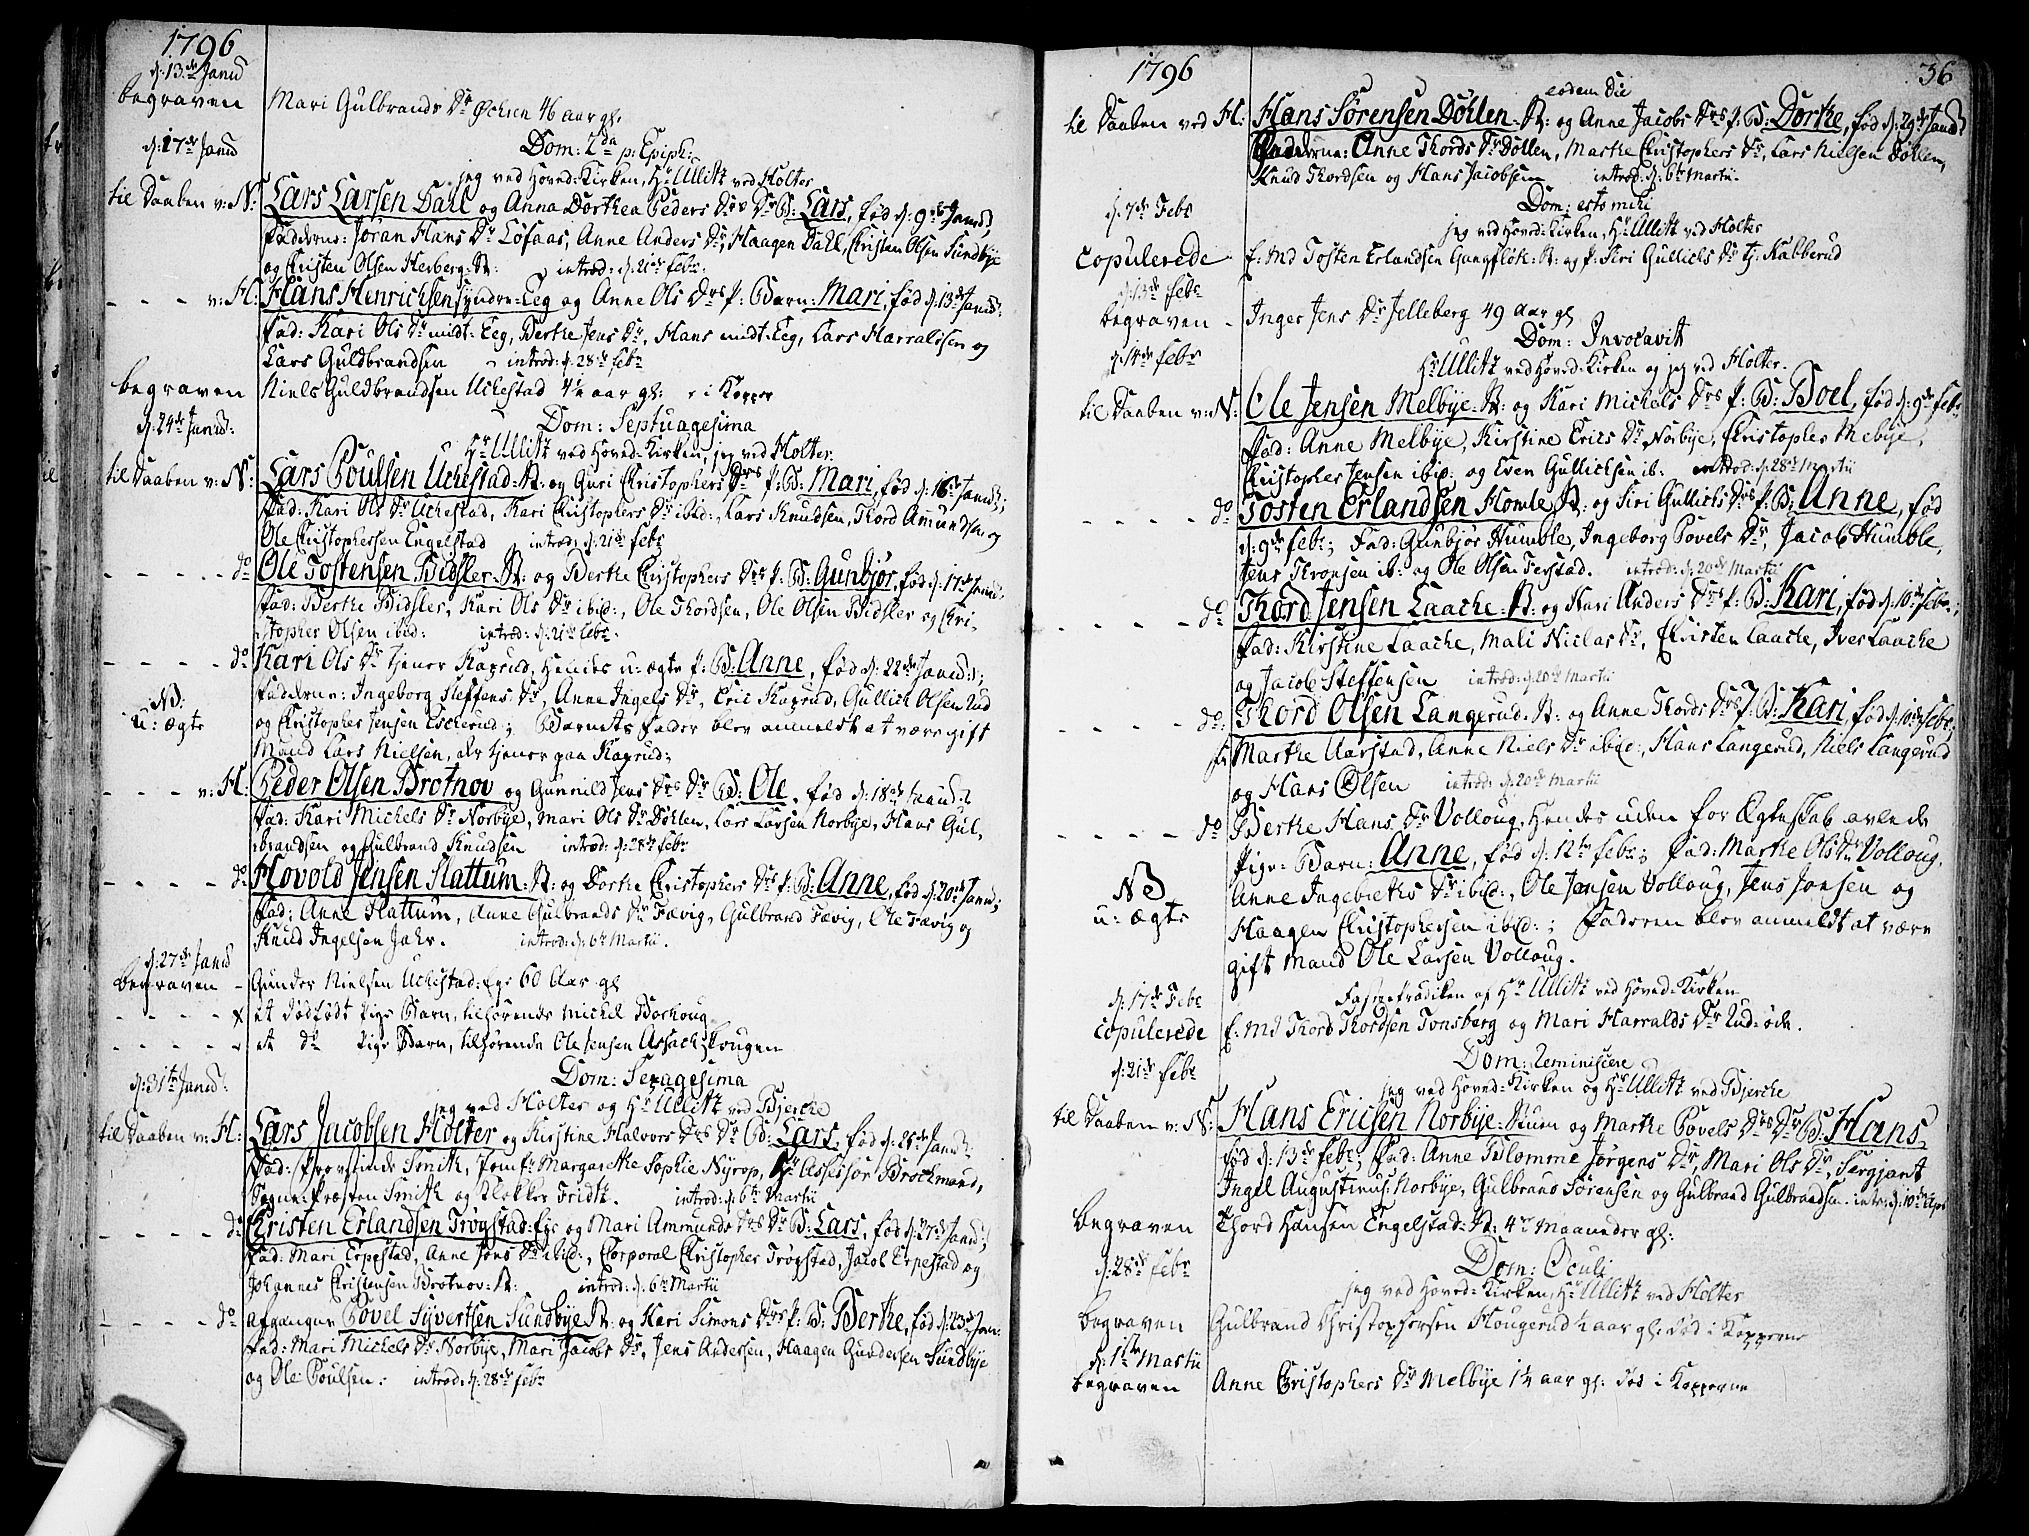 1796
d: 13de Janu
begraven Mari Gulbrands Dr Øchren 46 aar gl.
d: 17de Janu Dom: 2da p: Epiph:
jeg ved Hoved-Kirken, Hr Ullitz ved Holter
til Daaben v: N: Lars Larsen Dahl og Anna Dorthea Peders Drs Dr B: Lars, fød d: 9de Janu,
Fadderne: Joran Hans Dr Lofaas, Anne Anders Dr, Haagen Dahl, Christen Olsen Sundbye
og Christen Olsen Herberg: N: introd: d: 21de febr.
v: H: Hans Henrichsen syndre-Eeg og Anne Ols Drs p: Barn: Mari, fød d: 13de Janu:
Fad: Kari Ols Dr midt-Eeg, Berthe Jens Dr, Hans midt-Eeg, Lars Harraldsen og
Lars Guldbrandsen introd: d: 28de febr
begraven Niels Guldbrandsen Uchestad 4½ aar gl: i Kopper
d: 24de Janu: Dom: Septuagesima
Hr Ullitz ved Hoved-Kirken, jeg ved Holter.
til Daaben v: N: Lars Poulsen Uchestad: N: og Guri Christophers Drs p: B: Mari, fød d: 16de Janu;
Fad: Kari Ols Dr Uchestad, Kari Christophers Dr ibid:, Lars Knudsen, Thord Amundsen og
Ole Christophersen Engelstad introd: d: 21de febr
do Ole Tostensen Bidsler: N: og Berthe Christophers Drs p: B: Gunbjør, fød d: 17de Janu:
Fad: Berthe Bidsler, Kari Ols Dr ibid:, Ole Thordsen, Ole Olsen Bidsler og Chri-
stopher Olsen ibid: introd: d: 21de febr.
do Kari Ols Dr tjener Kagrud, hendes u: ægte p: B: Anne, fød d: 22de Janu:;
NB: Fadderne: Ingeborg Steffens Dr, Anne Ingels Dr, Eric Kagrud, Gullich Olsen Rud
u: ægte og Christopher Jensen Escherud; Barnets Fader blev anmeldt at være gift
Mand Lars Nielsen, der tjener paa Kagrud;
v: H: Peder Olsen Brotnov og Gunnild Jens Drs Dr B: Ole, fød d: 18de Janu:
Fad: Kari Michels Dr Norbye, Mari Ols Dr Døhlen, Lars Larsen Norbye, Hans Gul-
brandsen og Gulbrand Knudsen introd: d: 28de febr
do Hovold Jensen Slattum: N: og Dorthe Christophers Drs p: B: Anne, fød d: 20de Janu;
Fad: Anne Slattum, Anne Gulbrands Dr Fævig, Gulbrand Fævig, Ole Fævig og
Knud Ingelsen Jahr. introd: d: 6te Martii.
d: 27de Janu
begraven Gunder Nielsen Uchestad: Ege 60 Aar gl
et dødfødt Pige Barn, tilhørende Michel Borhoug
et do Pige Barn, tilhørende Ole Jensen Assachskougen
d: 31te Janu: Dom: Sexagesima
jeg ved Holter og Hr Ullitz ved Bjerche
til Daaben v: H: Lars Jacobsen Holter og Kirstine Halvors Drs Dr B: Lars, fød d: 25de Janu:
Fad: Provstinde Smith, Jomfr: Margarethe Sophie Nyrop, Hr Assessor Brochmand,
Sogne-Præsten Smith og Klokker Fridth. introd: d: 6te Martii
do Christen Erlandsen Trøgstad: Ege og Mari Ammunds Drs Dr B: Lars, fød d: 27de Janu;
Fad: Mari Erpestad, Anne Jens Dr ibid:, Corporal Christopher Trøgstad, Jacob Erpestad og
Johannes Christensen Brotnov: N: introd: d: 6te Martii
do afgangne Povel Syvertsen Sundbye N: og Kari Simons Drs p: B: Berthe, fød d: 23de Jan:
Fad: Mari Michels Dr Norbye, Mari Jacobs Dr, Jens Andersen, Haagen Gundersen Sundbye
og Ole Poulsen: introd: d: 28de febr
1796 36
eodem die
til Daaben ved H: Hans Sørensen Døhlen N: og Anne Jacobs Drs p: B: Dorthe, fød d: 29de Janu
Fadderne: Anne Thords Dr Døllen, Marthe Christophers Dr, Lars Nielsen Døhlen,
Knud Thordsen og Hans Jacobsen introd: d: 6te Martii.
d: 7de Febr Dom: esto mihi
jeg ved Hoved-Kirken, Hr Ullitz ved Holter
copulerede s: Md Tosten Erlandsen N: og p: Siri Gullichs Dr tj: Kabberud
d: 13de febr
begraven Inger Jens Dr Jelleberg 49 aar gl
d: 14de febr Dom: Invocavit
Hr Ullitz ved Hoved-Kirken og jeg ved Holter.
til Daaben v: N: Ole Jensen Melbye: N: og Kari Michels Drs p: B: Boel, fød d: 9de febr:
Fad: Anne Melbye, Kirstine Erics Dr Norbye, Christopher Mebye,
Christopher Jensen ibid: og Even Gullichsen ib: introd: d: 28de Martii
do Tosten Erlandsen Homle N: og Siri Gullichs Drs p: B: Anne, fød
d: 9de febr; Fad: Gunbjør Humble, Ingeborg Povels Dr, Jacob Humble,
Jens Thronsen ib: og Ole Olsen Ferstad. introd: d: 20de Martii
do Thord Jensen Laache: N: og Kari Anders Drs p: B: Kari, fød d: 10de febr;
Fad: Kirstine Laache, Mali Niclas Dr, Christen Laache, Iver Laache
og Jacob Steffensen introd: d: 20de Martii
do: Thord Olsen Langerud: N: og Anne Thords Drs p: B: Kari, fød d: 10de febr;
F: Marthe Aarstad, Anne Niels Dr ibid:, Hans Langerud, Niels Langerud
og Hans Olsen introd: d: 20de Martii
do Berthe Hans Dr Volloug, hendes uden for Ægteskab avlede
Pige-Barn: Anne, fød d: 12te febr; Fad: Marthe Ols Dr Volloug,
NB Anne Ingebreths Dr ibid:, Ole Jensen Volloug, Jens Jensen og
u: ægte Haagen Christophersen ibid:; Faderen blev anmeldt at være
gift Mand Ole Larsen Volloug.
d: 17de Febr Fasteprædiken af Hr Ullitz ved Hoved-Kirken
copulerede s: Md Thord Thordsen Tonsberg og Mari Harralds Dr Rud-øde.
d: 21de febr Dom: Reminiscere
jeg ved Hoved-Kirken og Hr Ullitz ved Bjerche
til Daaben v: N: Hans Ericsen Norbye: Huus og Marthe Povels Drs Dr B: Hans,
fød d: 13de febr; Fad: Anne Blomme Jørgens Dr, Mari Ols Dr, Sergjant
Ingel Augustinus Norbye, Gulbrand Sørensen og Gulbrand Gulbrandsen. intr: d: 10de Apr
begraven Thord Hansen Engelstad: N: 4 Maaneder gl:
d: 28de febr Dom: Oculi
jeg ved Hoved-Kirken, Hr Ullitz ved Holter
begraven Gulbrand Christophersen Hougerud ½ aar gl: død i Kopperne
d: 1ste Martii
begraven Anne Christophers Dr Melbye 1½ aar gl: død i Kopperne